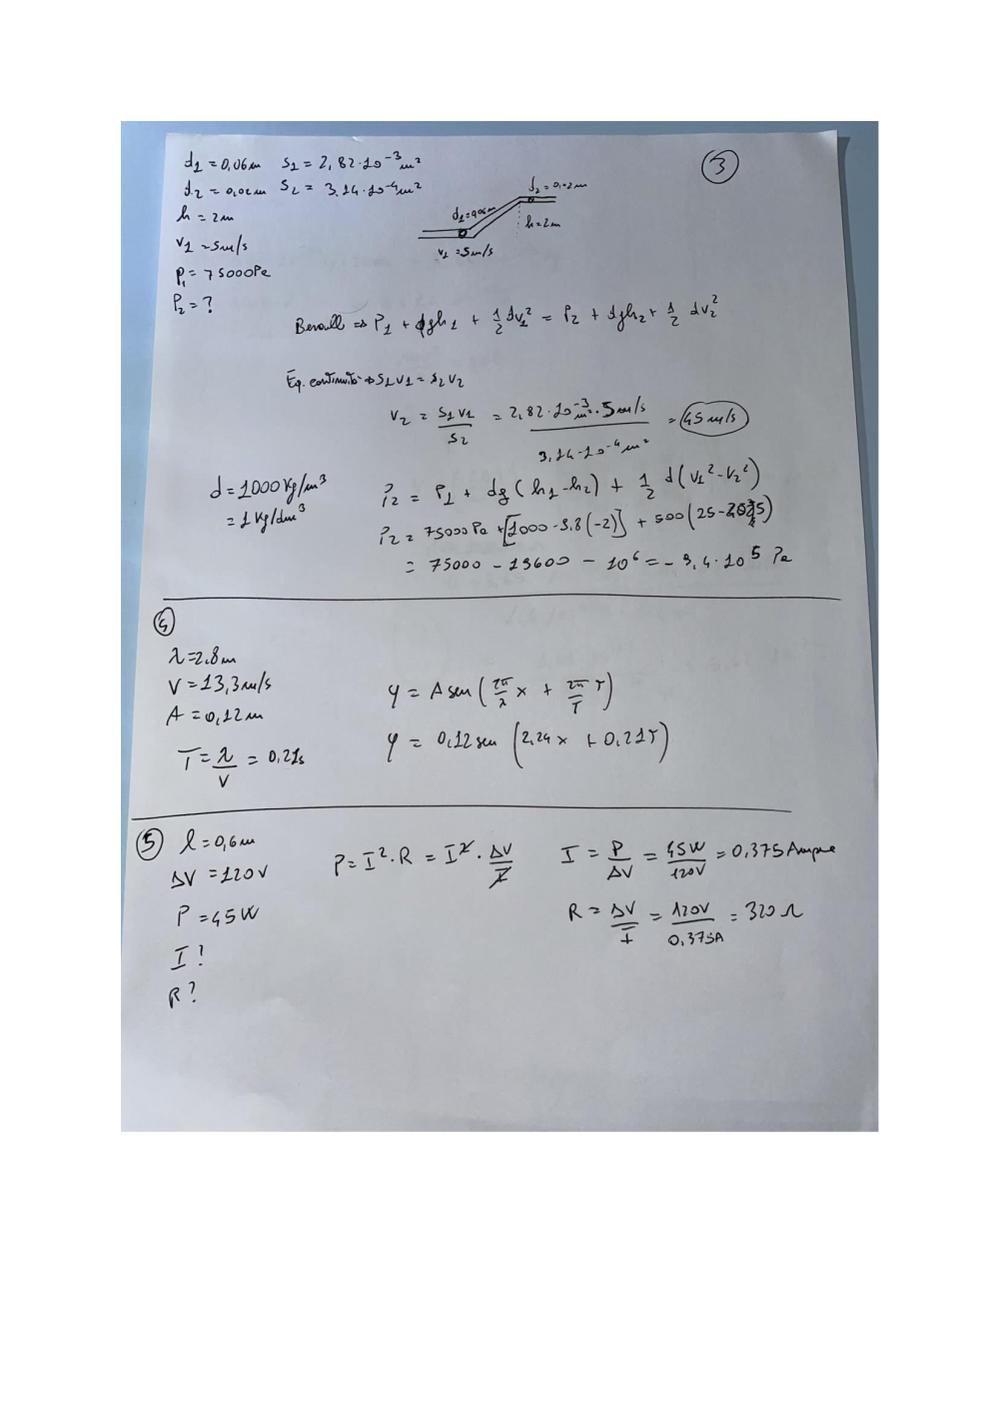 ③
d₁ = 0,06m S₁ = 2,82·10⁻³m²
d₂ = 0,02m S₂ = 3,14·10⁻⁴m²
h = 2m
v₁ = 5m/s
P₁ = 75000Pa
P₂ = ?
d₂ = 0,02m
d₁ = 0,06m
h = 2m
v₁ = 5m/s
⇒ P₁ + dgh₁ + 1/2 dv₁² = P₂ + dgh₂ + 1/2 dv₂²
Eq. continuità → S₁V₁ = S₂V₂
V₂ = S₁V₁/S₂ = 2,82·10⁻³m²·5m/s / 3,14·10⁻⁴m² = 45m/s
d = 1000Kg/m³
= 1Kg/dm³
P₂ = P₁ + dg(h₁-h₂) + 1/2 d(V₁²-V₂²)
P₂ = 75000Pa + [1000·9,8(-2)] + 500(25-2025)
= 75000 - 19600 - 10⁶ = - 9,4·10⁵ Pa
④
λ = 2,8m
V = 13,3m/s
A = 0,12m
T = λ/V = 0,21s
y = A sen(2π/λ x + 2π/T T)
y = 0,12 sen(2,24x + 0,21T)
⑤ l = 0,6m
ΔV = 120V
P = 45W
I?
R?
P = I²·R = I²·ΔV/I
I = P/ΔV = 45W/120V = 0,375 Ampere
R = ΔV/I = 120V/0,375A = 320Ω